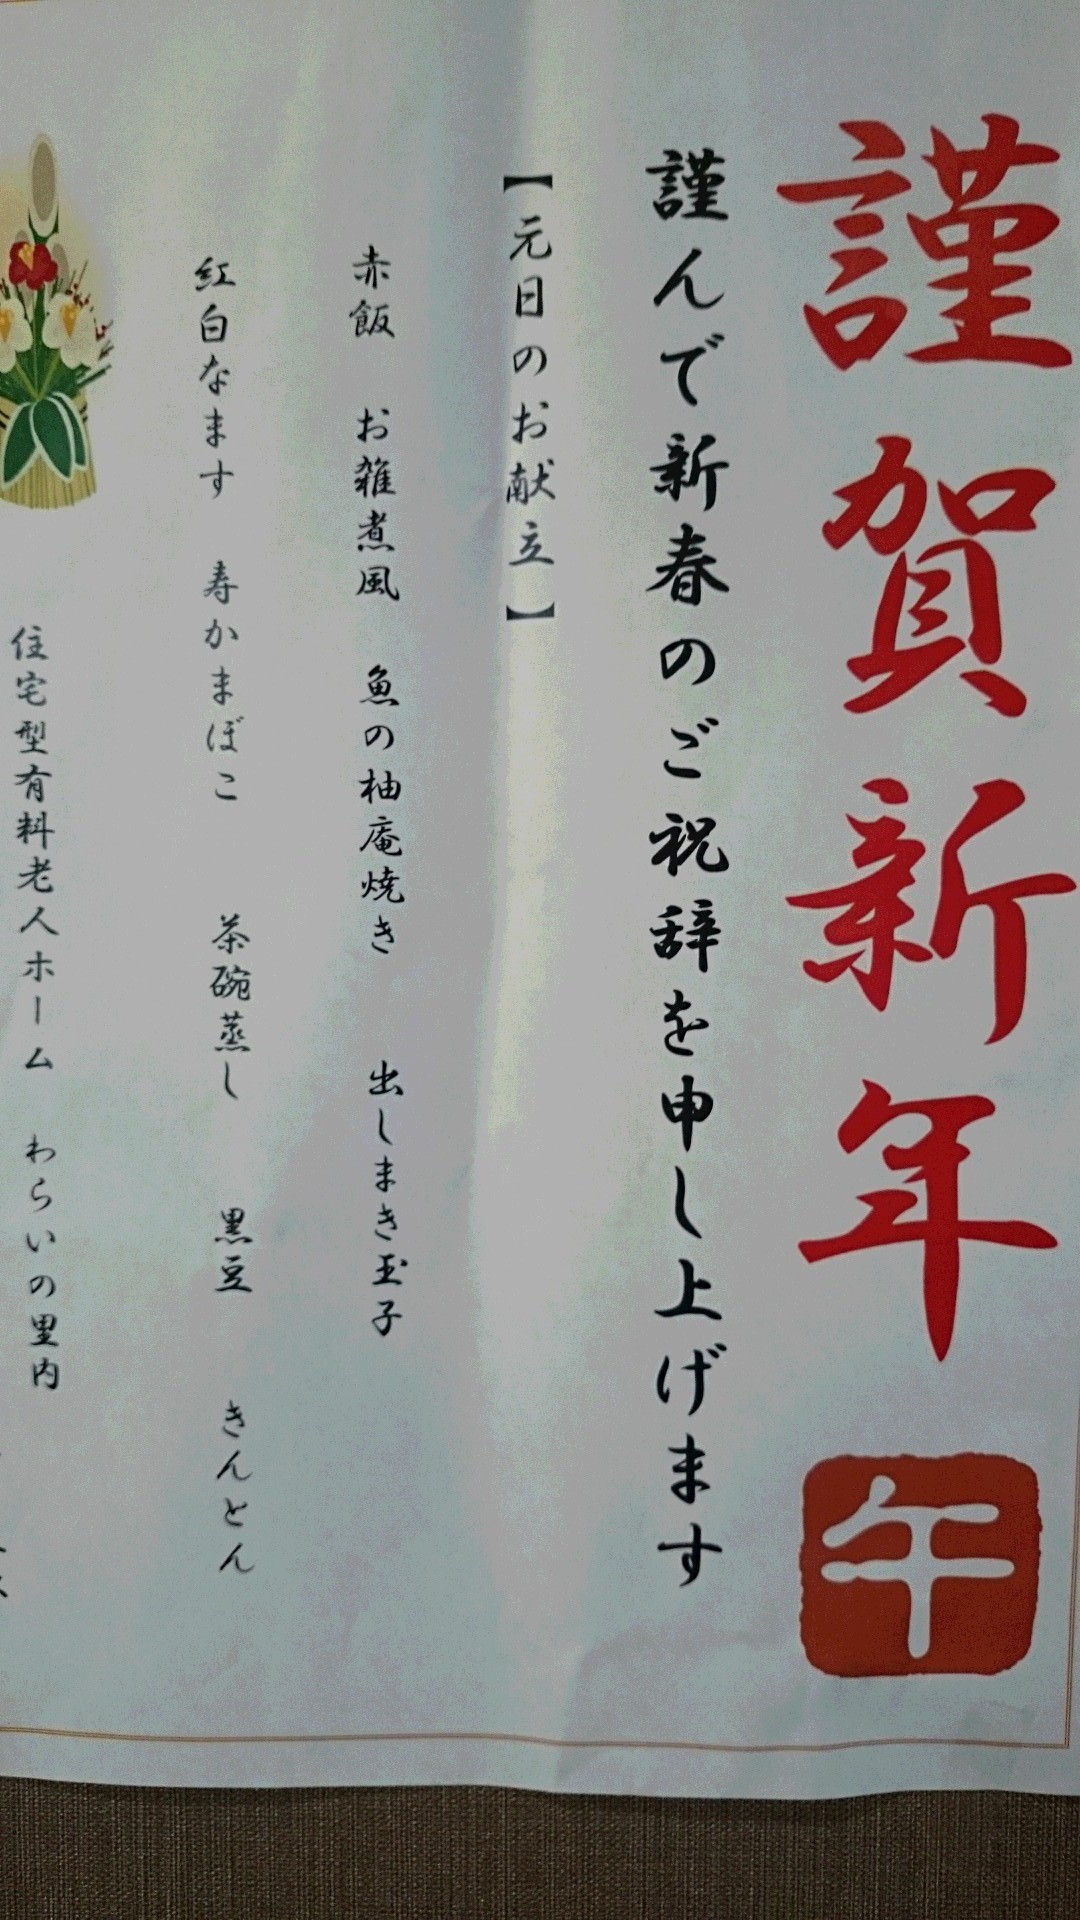 謹賀新年
午
謹んで新春のご祝辞を申し上げます
【元日のお献立】
赤飯　お雑煮風　魚の柚庵焼き　出しまき玉子
紅白なます　寿かまぼこ　茶碗蒸し　黒豆　きんとん
住宅型有料老人ホーム　わらいの里内